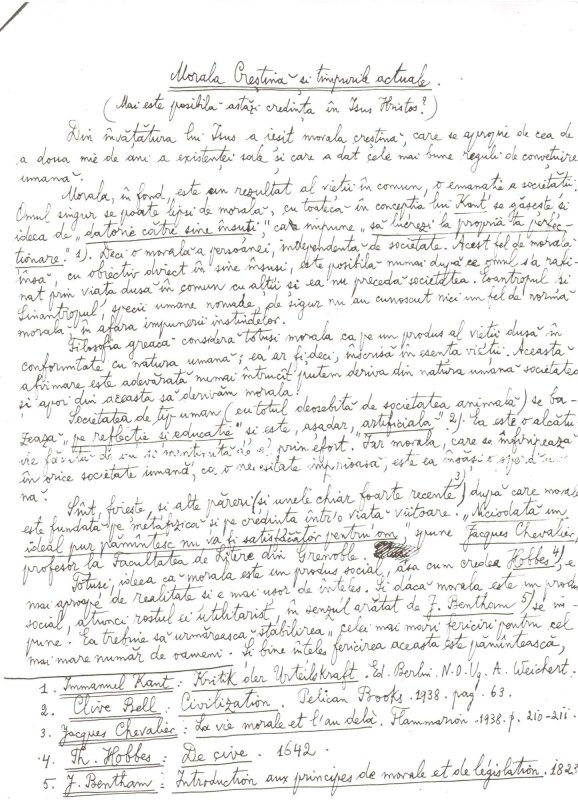 Morala Creștină și timpurile actuale.
(Mai este posibilă astăzi credința în Isus Hristos?)
Din învățătura lui Isus a ieșit morala creștină, care se apropie de cea de
a doua mie de ani a existenței sale și care a dat cele mai bune reguli de conviețuire
umană.
Morala, în fond, este un rezultat al vieții în comun, o emanație a societății.
Omul singur se poate lipsi de morală, cu toate că în concepția lui Kant se găsește și
ideea de „datorie către sine însuți" care impune „să lucrezi la propria ta perfec-
ționare." 1). Deci o morală a persoanei, independentă de societate. Acest fel de morală
însă, cu obiectiv direct în sine însuși, este posibilă numai după ce omul s'a rafi-
nat prin viața dusă în comun cu alții și ea nu precedă societatea. Eoantropul și
Sinantropul, specii umane nomade, de sigur nu au cunoscut nici un fel de normă
morală în afara impunerii instinctelor.
Filosofia greacă consideră totuși morala ca pe un produs al vieții dusă în
conformitate cu natura umană; ea ar fi, deci, înscrisă în esența vieții. Această
afirmare este adevărată numai întrucît putem deriva din natura umană societatea
și apoi din aceasta să derivăm morala.
Societatea de tip uman (cu totul deosebită de societatea animală) se ba-
zează „pe reflecție și educație" și este, așadar, „artificială" 2). Ea este o alcătu-
ire făcută de om și menținută de el prin efort. Iar morala, care se înfiripează
în orice societate umană, ca o necesitate imperioasă, este ea însăși o operă uma-
nă.
Sînt, firește, și alte păreri (și unele chiar foarte recente 3) după care morala
este fundată pe metafizică și pe credința într'o viață viitoare. „Niciodată un
ideal pur pămîntesc nu va fi satisfăcător pentru om", spune Jacques Chevalier,
profesor la Facultatea de Litere din Grenoble.
Totuși, ideea că morala este un produs social, așa cum credea Hobbes 4), e
mai aproape de realitate și e mai ușor de înțeles. Și dacă morala este un produs
social, atunci rostul ei utilitarist, în sensul arătat de J. Bentham 5), se im-
pune. Ea trebuie să urmărească stabilirea „celei mai mari fericiri pentru cel
mai mare număr de oameni. Și bine înțeles fericirea aceasta este pămîntească,
1. Immanuel Kant: Kritik der Urteilskraft. Ed. Berlin. A. Weichert.
2. Clive Bell: Civilization. Pelican Books. 1938. pag. 63.
3. Jacques Chevalier: La vie morale et l'au delà. Flammarion. 1938. p. 210-211.
4. Th. Hobbes: De cive. 1642.
5. J. Bentham: Introduction aux principes de morale et de législation. 1823